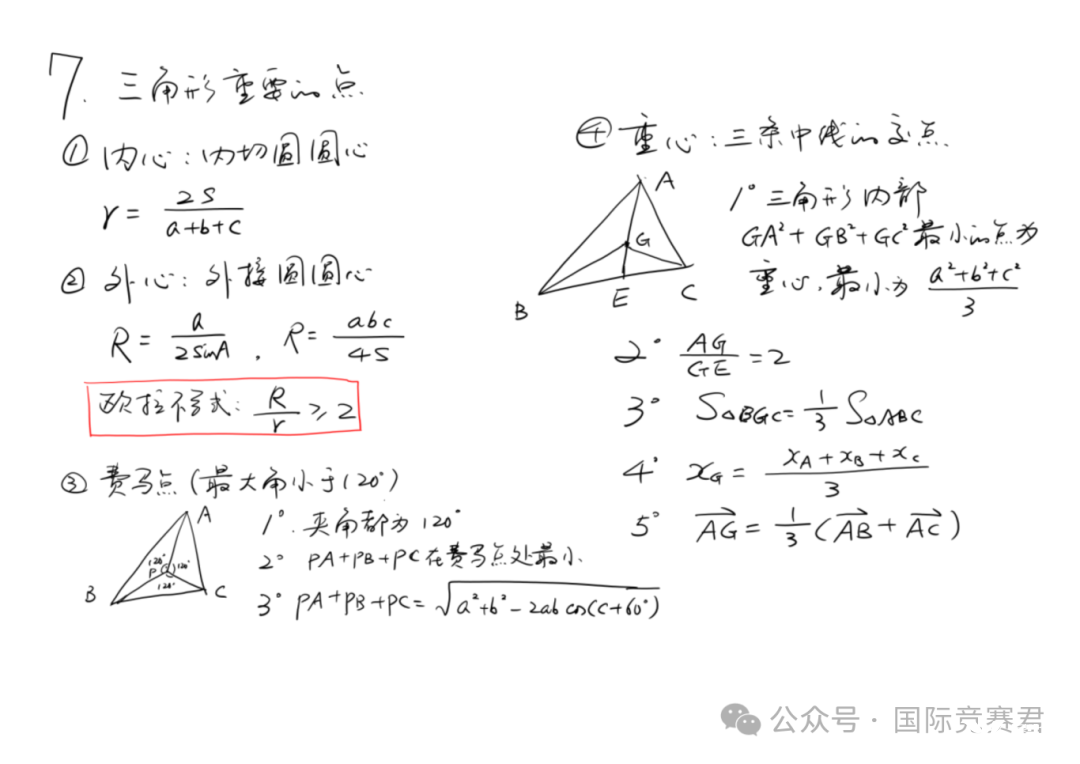 7. 三角形重要的点
① 内心：内切圆圆心
r = 2S / (a+b+c)
② 外心：外接圆圆心
R = a / 2sinA , R = abc / 4S
欧拉不等式: R/r ≥ 2
③ 费马点 (最大角小于120°)
A
B
C
P
120°
120°
120°
1°. 夹角都为120°
2° PA+PB+PC在费马点处最小
3° PA+PB+PC = √(a²+b²-2ab cos(C+60°))
④ 重心：三条中线的交点
A
G
B
E
C
1° 三角形内部
GA²+GB²+GC²最小的点为
重心, 最小为 (a²+b²+c²) / 3
2° AG/GE = 2
3° S△BGC = 1/3 S△ABC
4° x_G = (x_A+x_B+x_C) / 3
5° \overrightarrow{AG} = 1/3 (\overrightarrow{AB} + \overrightarrow{AC})
公众号 · 国际竞赛君